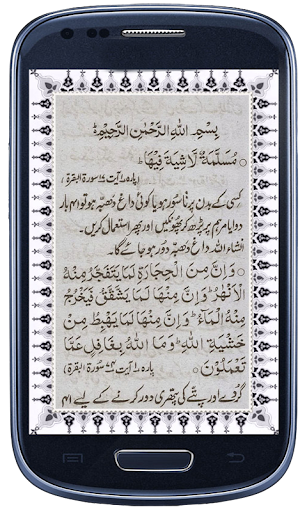 بِسْمِ اللهِ الرَّحْمٰنِ الرَّحِيْمِ ط
○ مُسَلَّمَةٌ لَّاشِيَةَ فِيْهَا ط
پارہ ۱، آیت ۷۱ سورۃ البقرۃ)
کسی کے بدن پر ناسور ہو یا کوئی داغ دھبّہ ہو تو ۴۱ بار
دوا یا مرہم پر پڑھ کر پھونکیں اور پھر استعمال کریں۔
انشاء اللہ داغ دھبّہ دور ہو جائے گا۔
○ وَاِنَّ مِنَ الْحِجَارَةِ لَمَا يَتَفَجَّرُ مِنْهُ
الْاَنْهٰرُ ط وَاِنَّ مِنْهَا لَمَا يَشَّقَّقُ فَيَخْرُجُ
مِنْهُ الْمَآءُ ط وَاِنَّ مِنْهَا لَمَا يَهْبِطُ مِنْ
خَشْيَةِ اللهِ ط وَمَا اللهُ بِغَافِلٍ عَمَّا
تَعْمَلُوْنَ ○ پارہ ۱، آیت ۷۴ سورۃ البقرۃ)
گردے اور پتّے کی پتھری دور کرنے کے لیے ۴۱